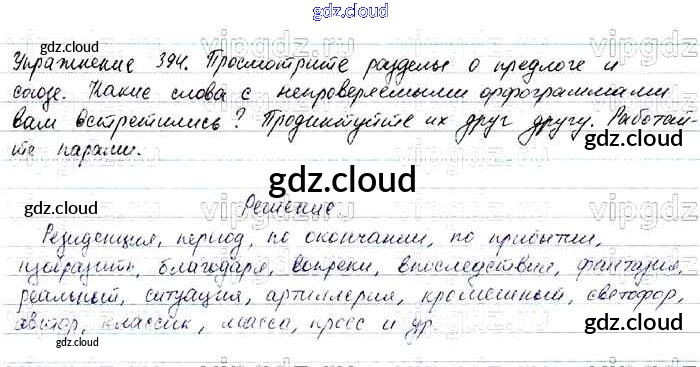 gdz.cloud
gdz.cloud gdz.cloud
Упражнение 394. Просмотрите разделы о предлоге и
союзе. Какие слова с непроверяемыми орфограммами
вам встретились? Продиктуйте их друг другу. Работай-
те парами.
gdz.cloud
gdz.cloud
gdz.cloud
Решение
Резиденция, период, по окончании, по прибытии,
изобразить, благодаря, вопреки, впоследствии, фантазия,
реальный, ситуация, артиллерия, крошечный, светофор,
автор, классик, масса, кросс и др.
gdz.cloud
gdz.cloud
gdz.cloud